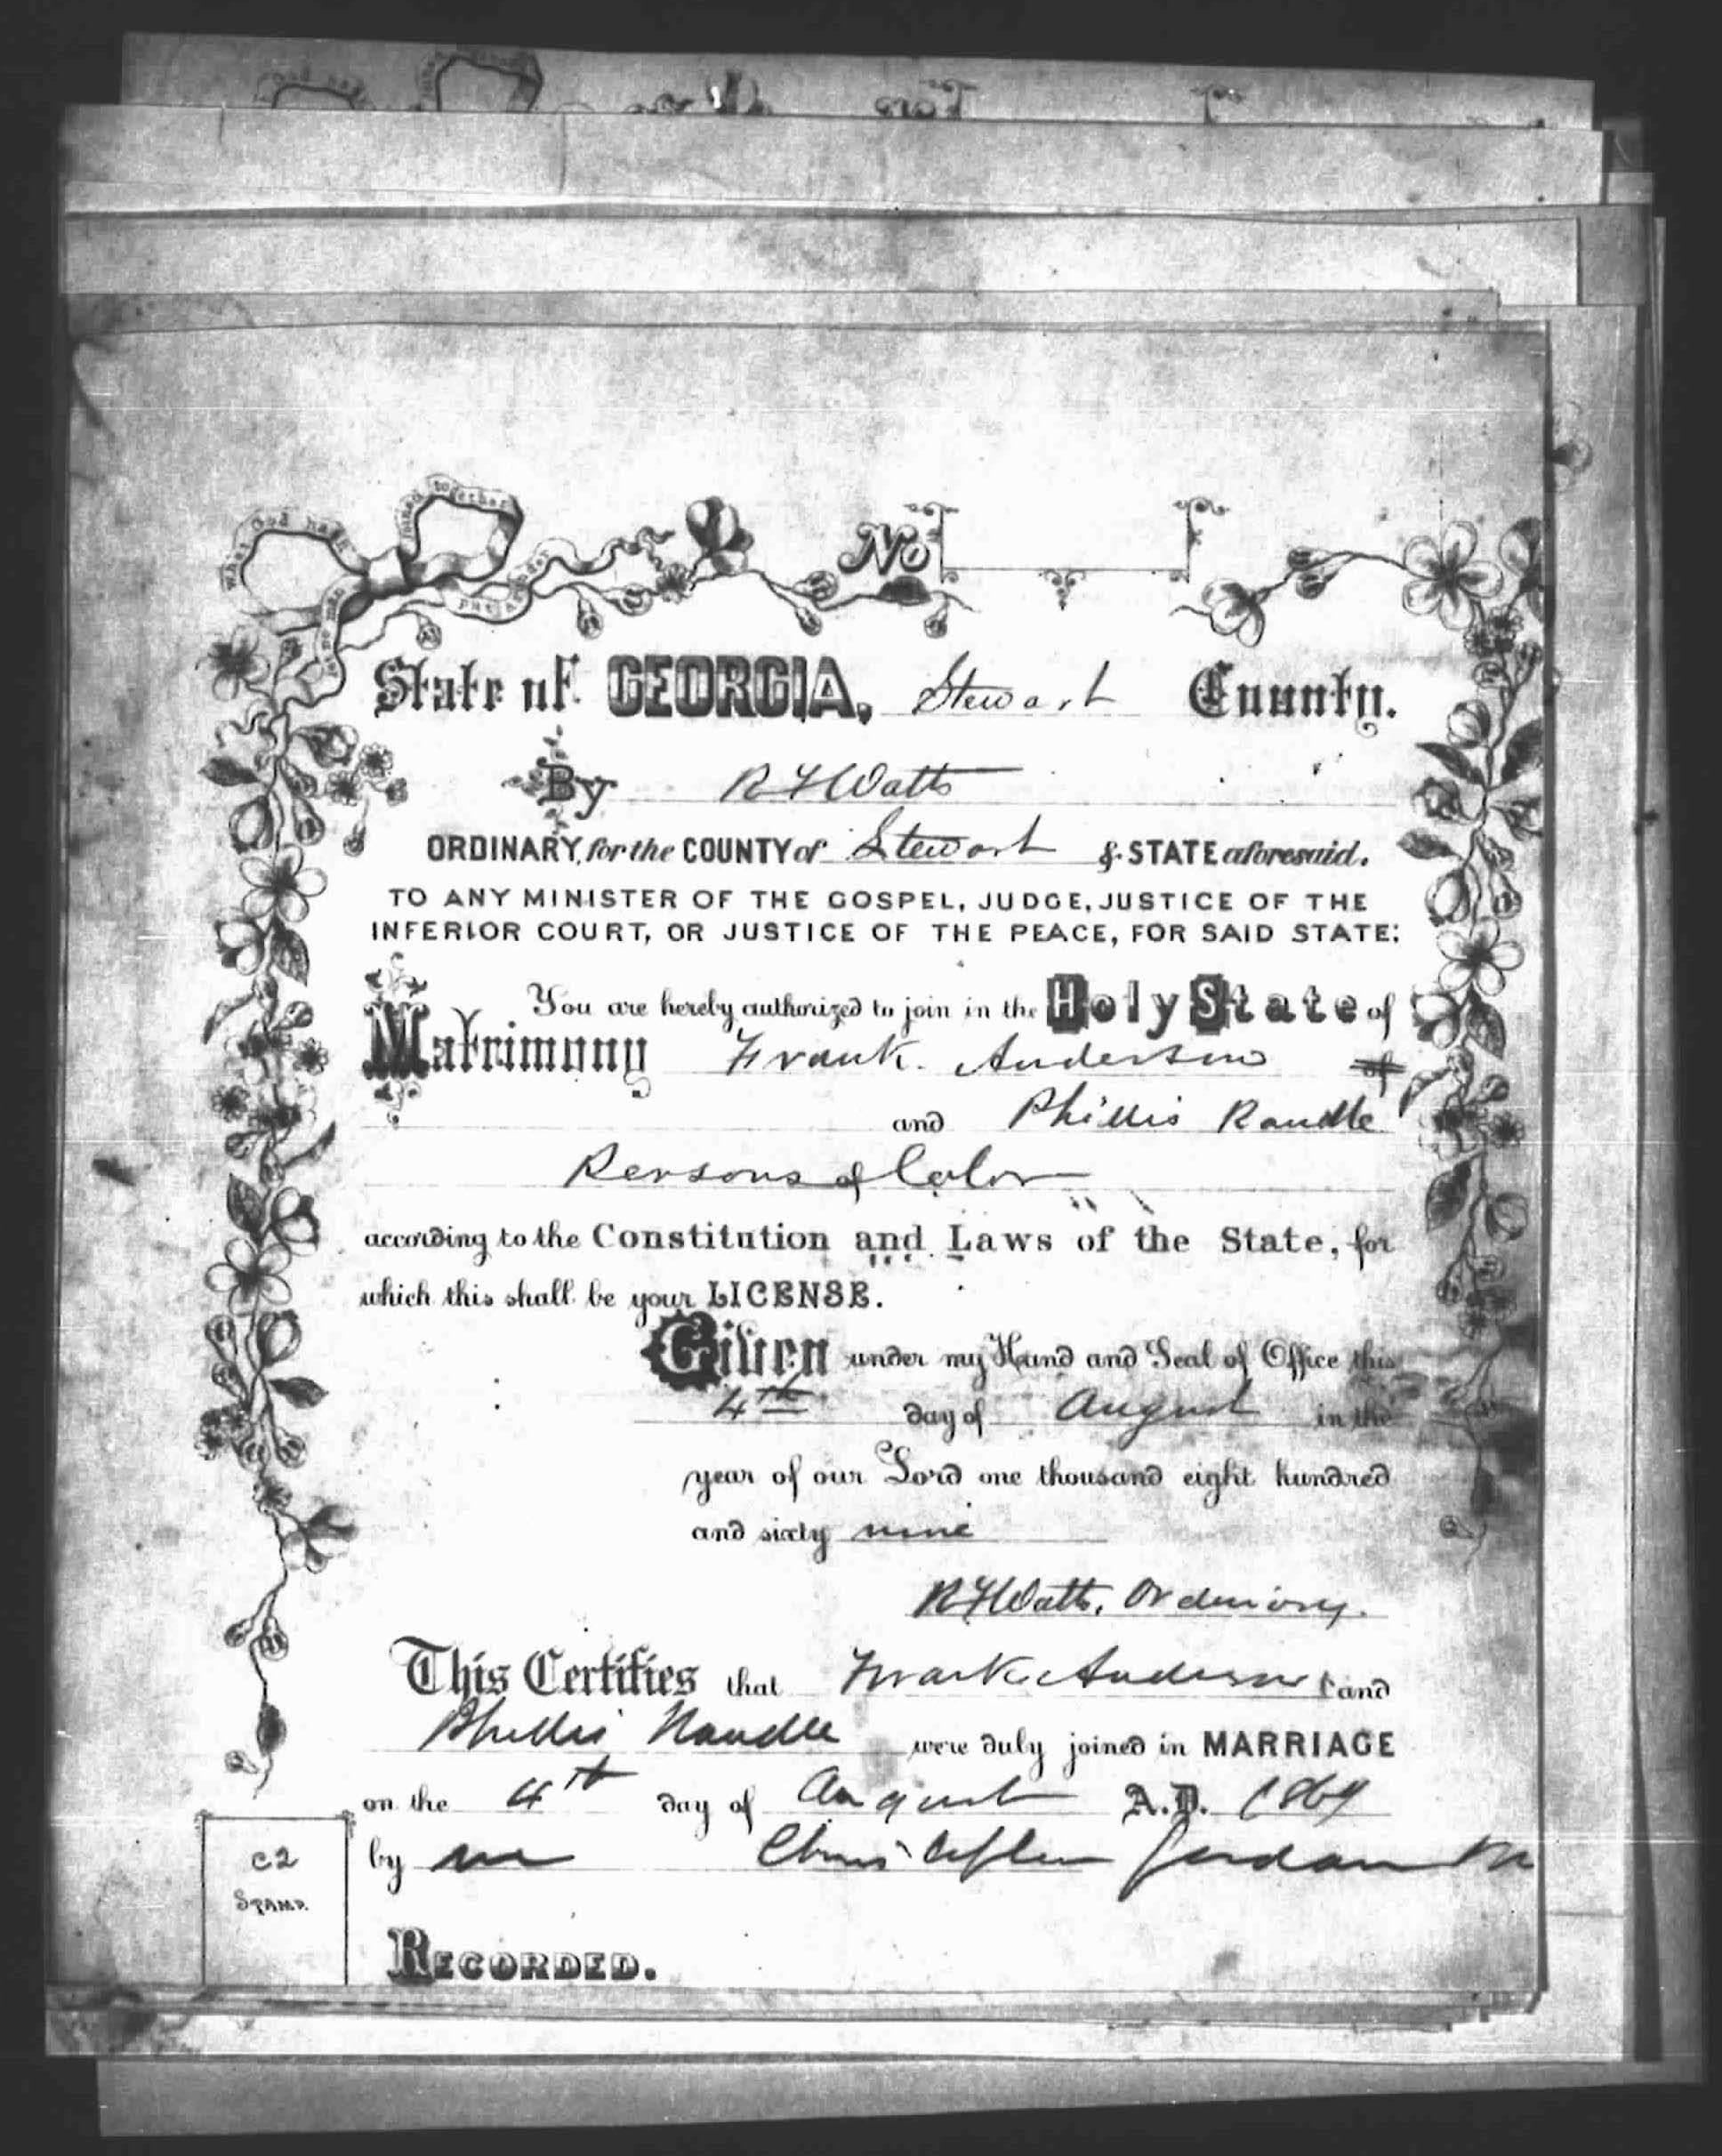 what God hath joined together
let no man put asunder
No
State of GEORGIA, Stewart County.
By R F Watts
ORDINARY, for the COUNTY of Stewart & STATE aforesaid.
TO ANY MINISTER OF THE GOSPEL, JUDGE, JUSTICE OF THE
INFERIOR COURT, OR JUSTICE OF THE PEACE, FOR SAID STATE:
You are hereby authorized to join in the Holy State of
Matrimony Frank Anderson of
and Phillis Randle
Persons of Color
according to the Constitution and Laws of the State, for
which this shall be your LICENSE.
Given under my Hand and Seal of Office this
4th day of August in the
year of our Lord one thousand eight hundred
and sixty nine
R F Watts, Ordinary.
This Certifies that Frank Anderson and
Phillis Randle were duly joined in MARRIAGE
on the 4th day of August A.D. 1869
by me Christopher Jordan
c2
STAMP.
RECORDED.